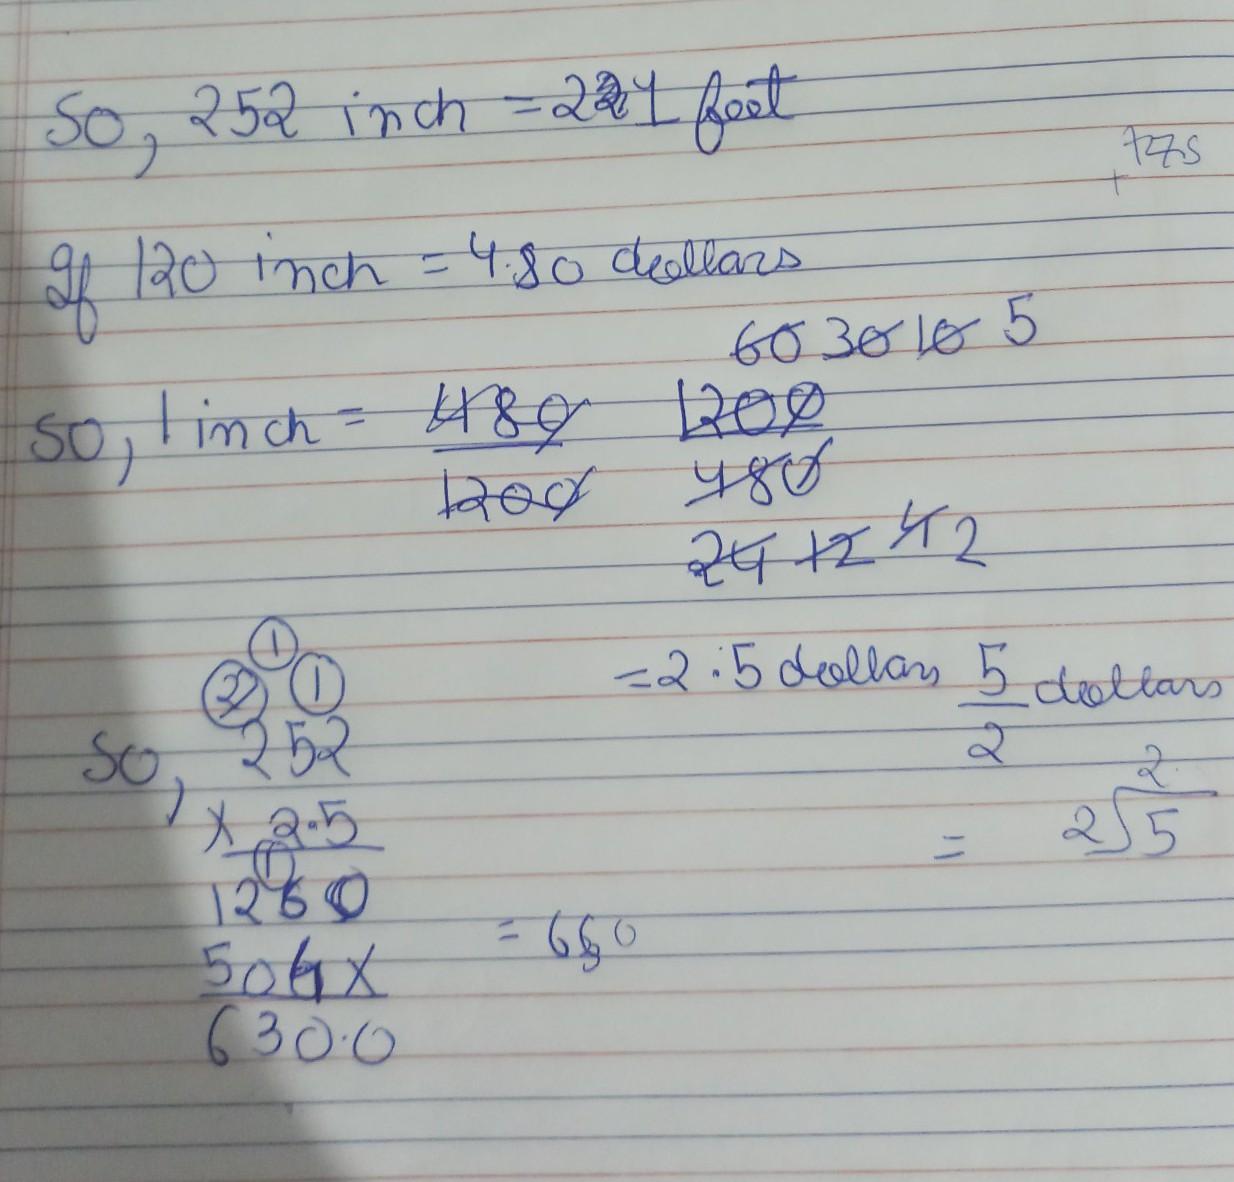 So, 252 inch = 21 feet
If 120 inch = 4.80 dollars
60 30 10 5
So, 1 inch = 480 1200
1200 480
24 12 4 2
1
2 1
= 2.5 dollars 5 dollars
2
So, 252
2
× 2.5
= 2√5
1
1260
= 630
504×
630.0